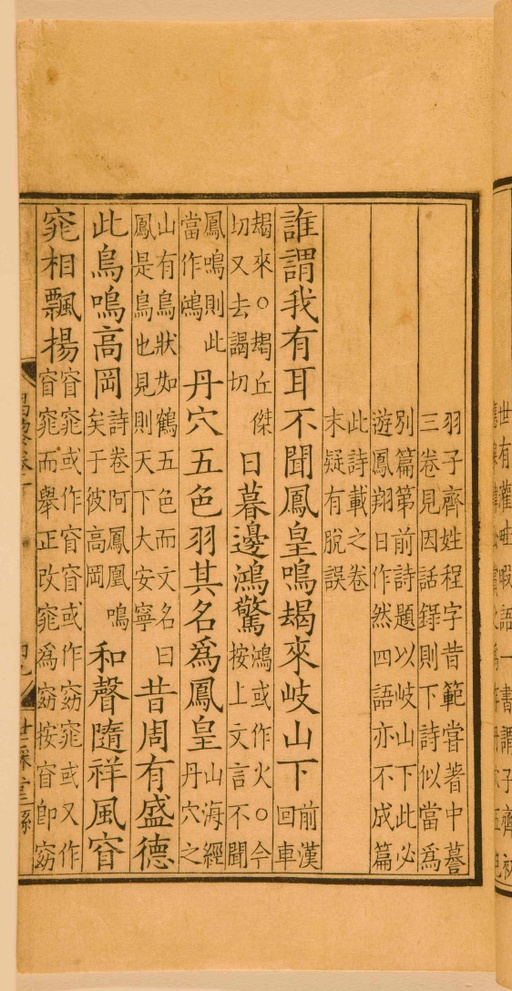 羽子齊姓程字昔範嘗著中蕚
三卷見因話録則下詩似當爲
別篇第前詩題以岐山下此必
遊鳳翔日作然四語亦不成篇
此詩載之卷
末疑有脫誤
誰謂我有耳不聞鳳皇鳴朅來岐山下前漢
回車
朅來○朅丘傑
切又去謁切
日暮邊鴻驚鴻或作火○今
按上文言不聞
鳳鳴則此
當作鴻
丹穴五色羽其名爲鳳皇山海經
丹穴之
山有鳥狀如鶴五色而文名曰
鳳是鳥也見則天下大安寧
昔周有盛德
此鳥鳴高岡詩卷阿鳳凰鳴
矣于彼高岡
和聲隨祥風窅
窕相飄揚窅窕或作窅窅或作窈窕或又作
窅窕而舉正改窕爲窈按窅卽窈